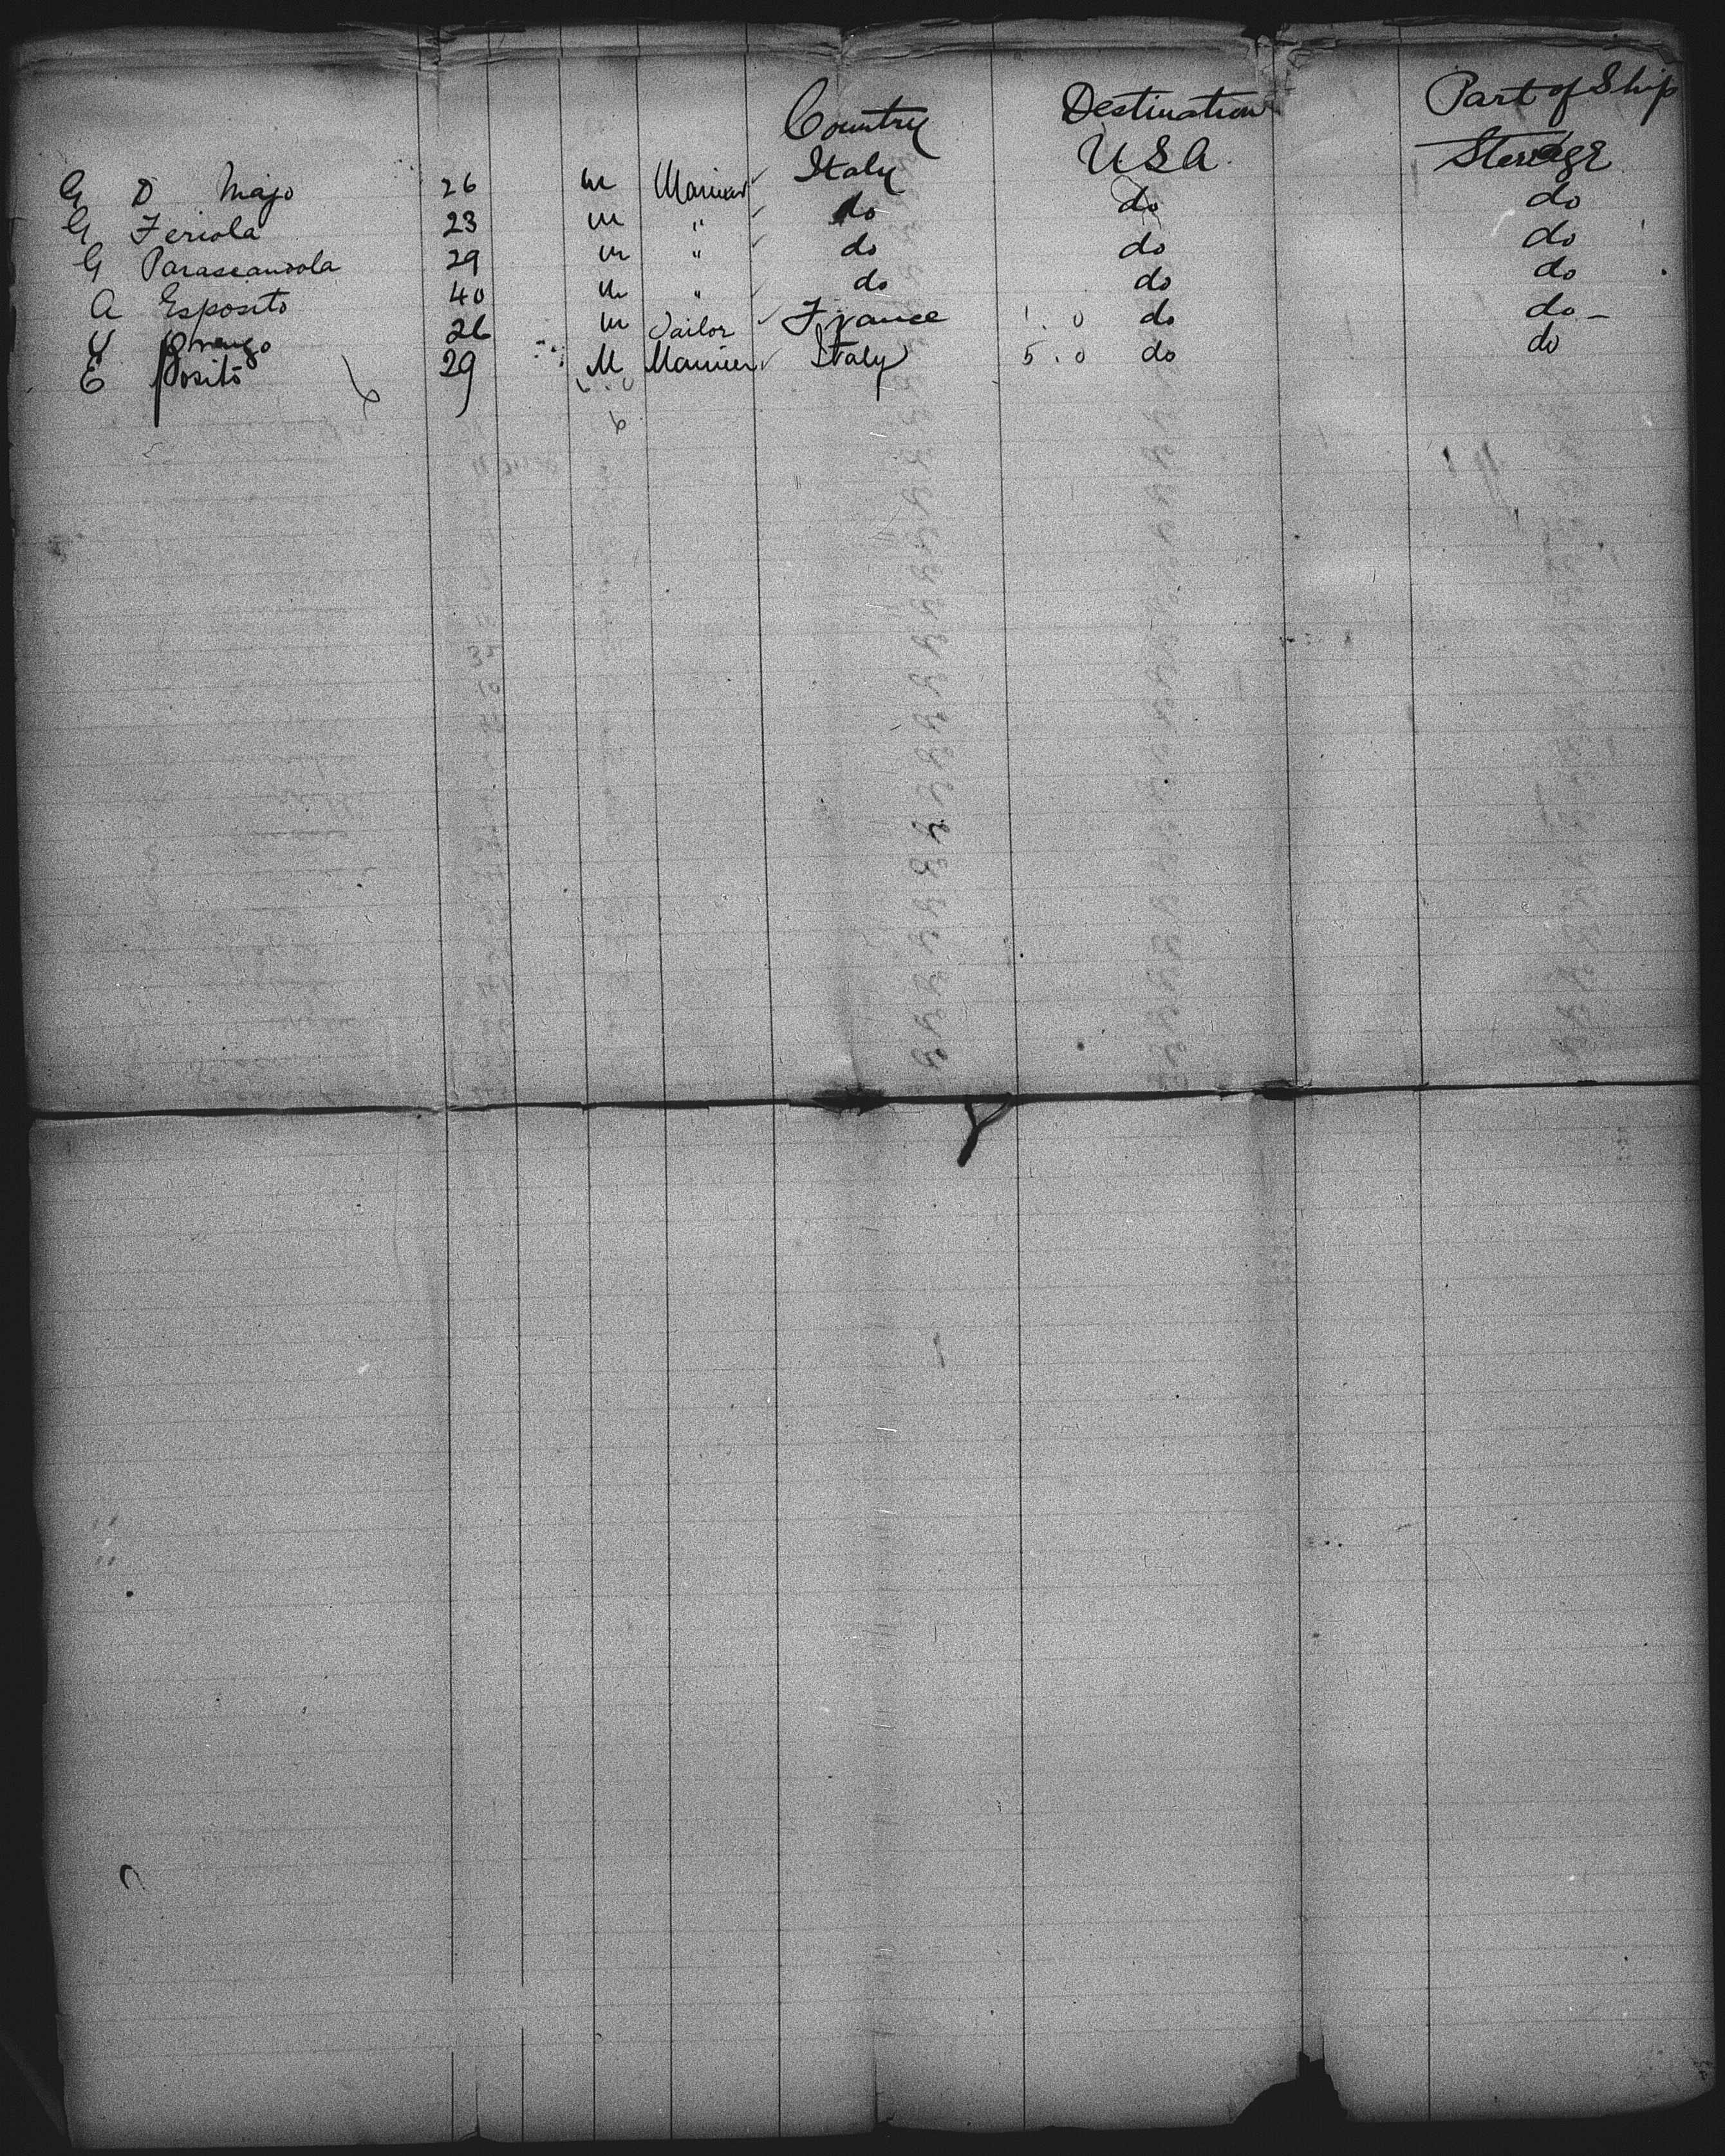 Country Destination Part of Ship
G D Majo 26 m Mariner Italy USA Steerage
G Feriola 23 m " do do do
G Parascandola 29 m " do do do
A Esposito 40 m " do do do
26 m Sailor France 1.0 do do -
E Posito 29 M Mariner Italy 5.0 do do
6 6